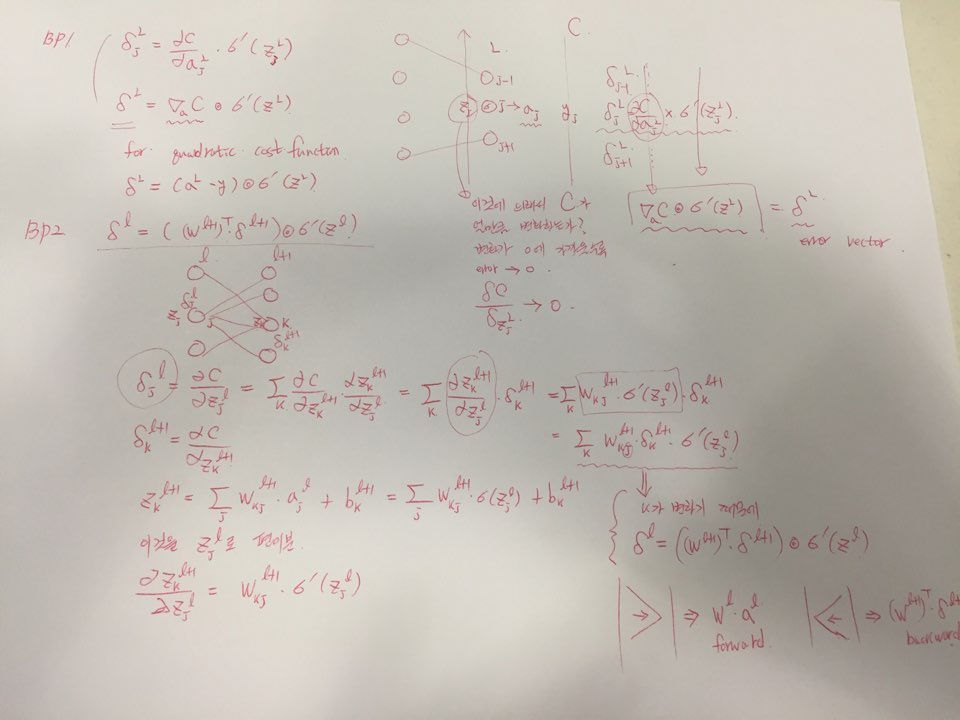 BP1
δⱼᴸ = ∂C/∂aⱼᴸ · σ′(zⱼᴸ)
δᴸ = ∇ₐC ⊙ σ′(zᴸ)
for quadratic cost function
δᴸ = (aᴸ-y) ⊙ σ′(zᴸ)
L
j-1
zⱼ j → aⱼ yⱼ
j+1
C
δⱼ₋₁ᴸ
δⱼᴸ = ∂C/∂aⱼᴸ × σ′(zⱼᴸ).
δⱼ₊₁ᴸ
∇ₐC ⊙ σ′(zᴸ) = δᴸ
error vector
이것에 의해서 C가
얼만큼 변화하는가?
변화가 0에 가까울수록
에러 → 0.
δC/δzⱼᴸ → 0.
BP2
δˡ = ((wˡ⁺¹)ᵀ · δˡ⁺¹) ⊙ σ′(zˡ)
l l+1
δⱼˡ
zⱼ j zₖ k
δₖˡ⁺¹
δⱼˡ = ∂C/∂zⱼˡ = Σₖ ∂C/∂zₖˡ⁺¹ · ∂zₖˡ⁺¹/∂zⱼˡ = Σₖ ∂zₖˡ⁺¹/∂zⱼˡ · δₖˡ⁺¹ = Σₖ wₖⱼˡ⁺¹ · σ′(zⱼˡ) · δₖˡ⁺¹
= Σₖ wₖⱼˡ⁺¹ · δₖˡ⁺¹ · σ′(zⱼˡ)
δₖˡ⁺¹ = ∂C/∂zₖˡ⁺¹
zₖˡ⁺¹ = Σⱼ wₖⱼˡ⁺¹ · aⱼˡ + bₖˡ⁺¹ = Σⱼ wₖⱼˡ⁺¹ · σ(zⱼˡ) + bₖˡ⁺¹
이것을 zⱼˡ로 편미분.
∂zₖˡ⁺¹/∂zⱼˡ = wₖⱼˡ⁺¹ · σ′(zⱼˡ)
k가 변하기 때문에
δˡ = ((wˡ⁺¹)ᵀ · δˡ⁺¹) ⊙ σ′(zˡ)
⇒ wˡ · aˡ
forward.
⇒ (wˡ⁺¹)ᵀ · δˡ⁺¹
backward